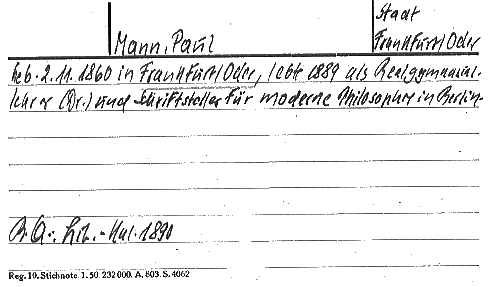 Stadt
Mann, Paul
Frankfurt/Oder
geb. 2.11.1860 in Frankfurt/Oder, lebte 1889 als Realgymnasial-
lehrer (Dr.) und Schriftsteller für moderne Philosophie in Berlin.
Lit.-Kal. 1890
Reg. 10. Stichnote. 1. 50. 232000. A. 803. S. 4062